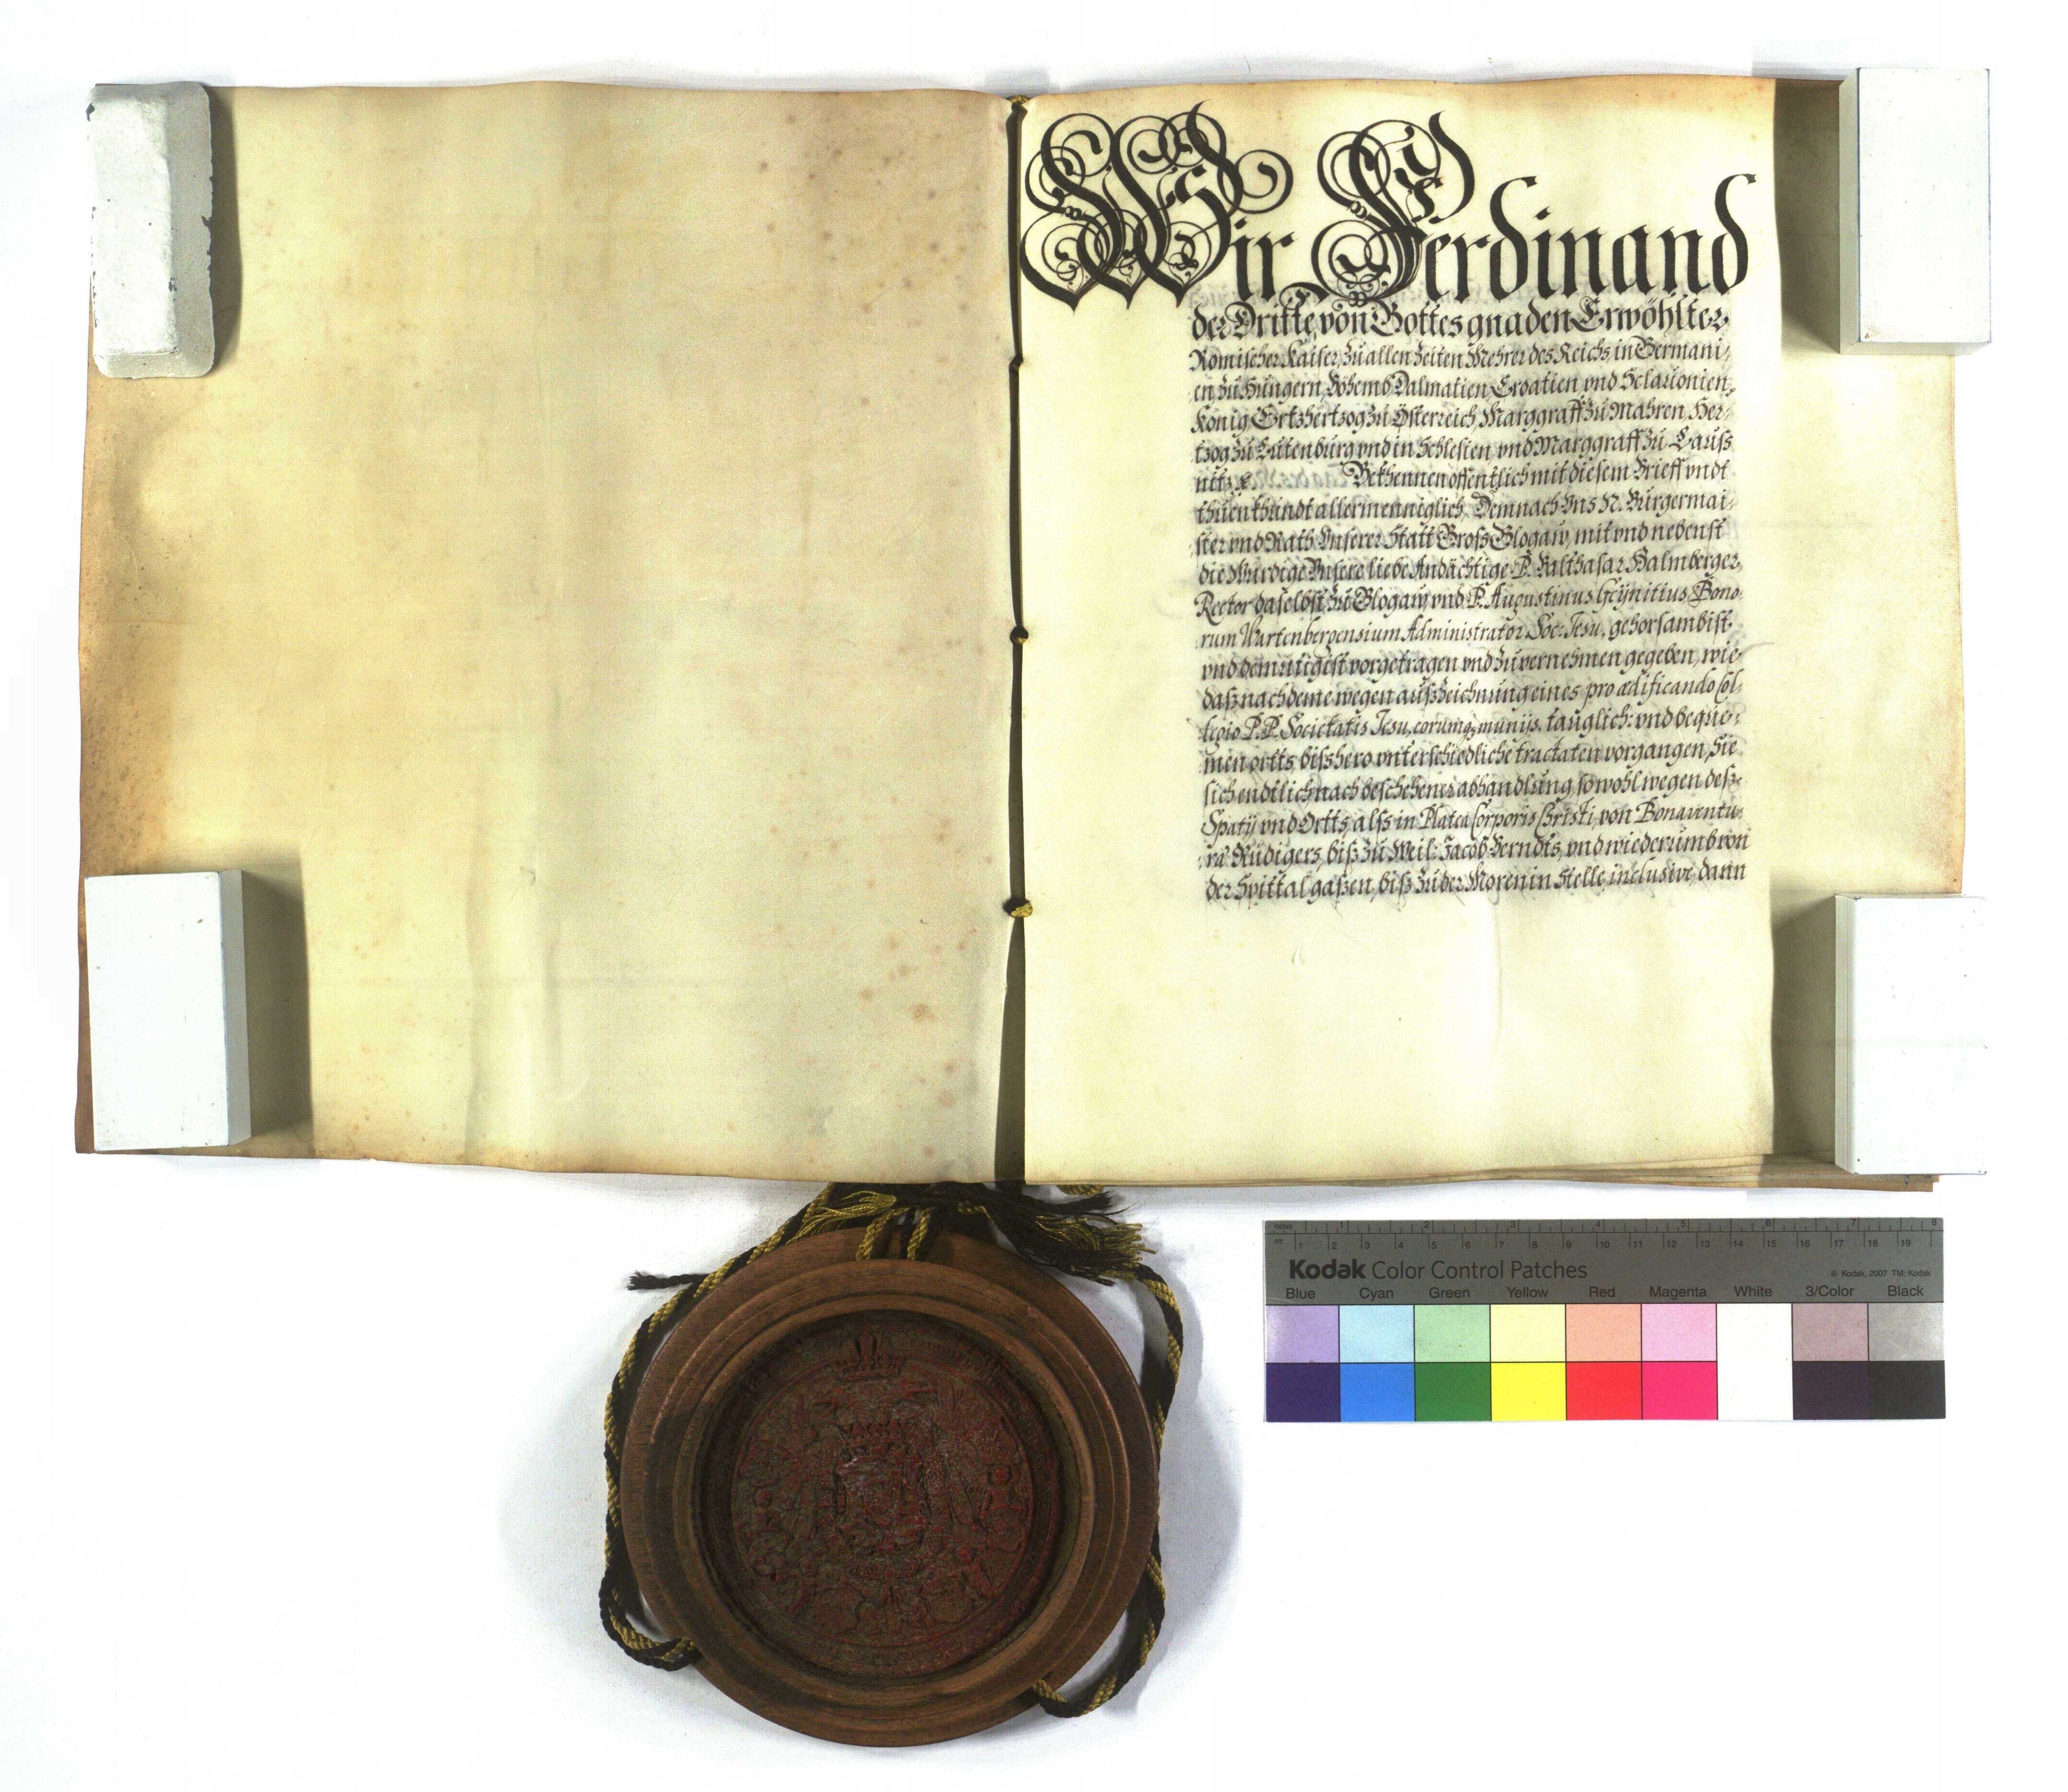 Wir Ferdinand
der Dritte, von Gottes gnaden Erwöhlter
Römischer Kaiser, zu allen Zeiten Mehrer des Reichs in Germani,
en, zu Hungern, Böhemb, Dalmatien, Croatien, vnd Sclauonien,
König, Ertzhertzog zu Österreich, Marggraff zu Mahren, Her,
tzog zu Lützenburg vnd in Schlesien, vnd Marggraff zu Lauß
nitz, Bekhennen offentlich mit diesem Brieff vndt
thuen khundt allermenniglich, Demnach Vns N. Burgermai,
ster vnd Rath Vnserer Statt Groß Glogaw, mit vnd nebenst
die Würdige Vnsere liebe Andächtige P. Balthasar Halmberger
Rector daselbst zu Glogaw, vnd P. Augustinus Heÿnitius, Bono,
rum Wartenbergensium Administrator Soc: Jesu, gehorsambist
vnd demütigist vorgetragen vnd zu vernehmen gegeben, wie
daß nach deme wegen außzeichnung eines pro ædificando Col,
legio P.P. Societatis Jesu, eorumq; munijs, tauglich: vnd beque,
men ortts bißhero vnterschiedliche tractaten vorgangen, Sie
sich endtlich nach beschehener abhandlung, sowohl wegen deß
Spatij vnd Ortts, alß in Platea Corporis Christi, von Bonauentu,
ra Rüdigers, biß zu Weil: Jacob Berndts, vnd wiederumb von
der Spittal gaßen, biß zu der Morenin Stelle inclusive, dann
inches 1 2 3 4 5 6 7 8
cm 1 2 3 4 5 6 7 8 9 10 11 12 13 14 15 16 17 18 19
Kodak Color Control Patches © Kodak, 2007 TM: Kodak
Blue Cyan Green Yellow Red Magenta White 3/Color Black